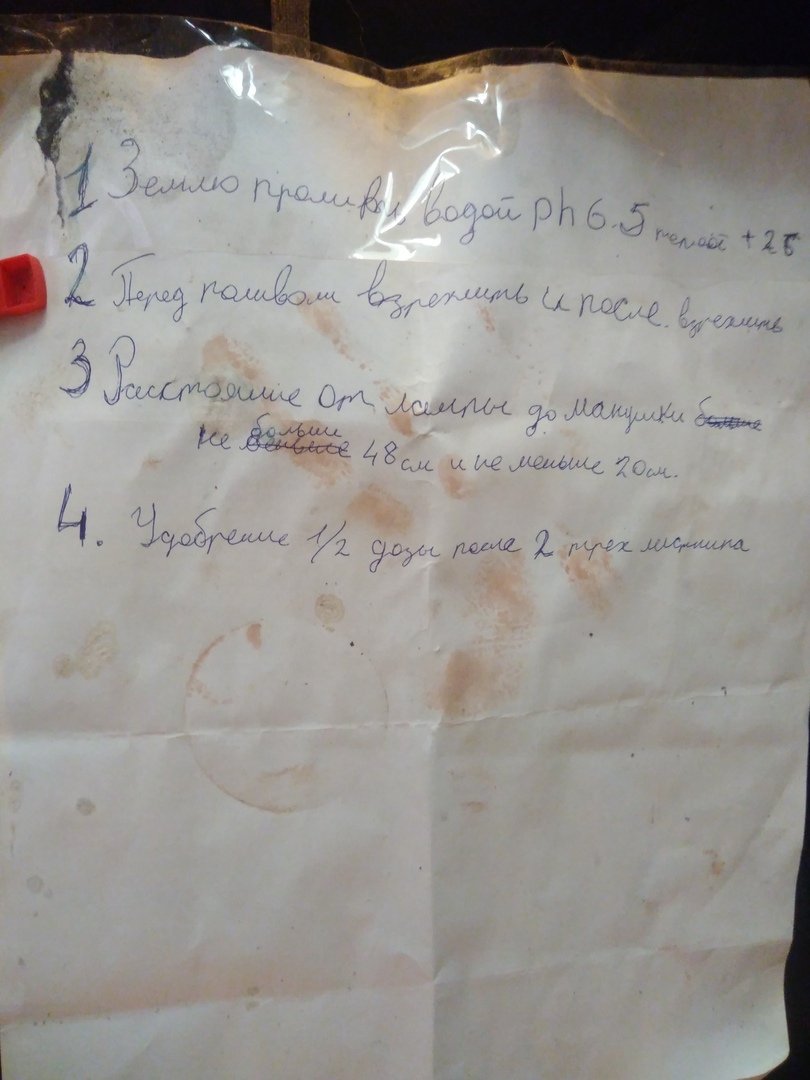 1 Землю проливал водой ph 6.5 +25
2 Перед поливом взрехлить и после. взрехлить
3 Расстояние от лампы до макушки
не больше 48 см и не меньше 20 см.
4. Удобрение 1/2 дозы после 2 трех листника